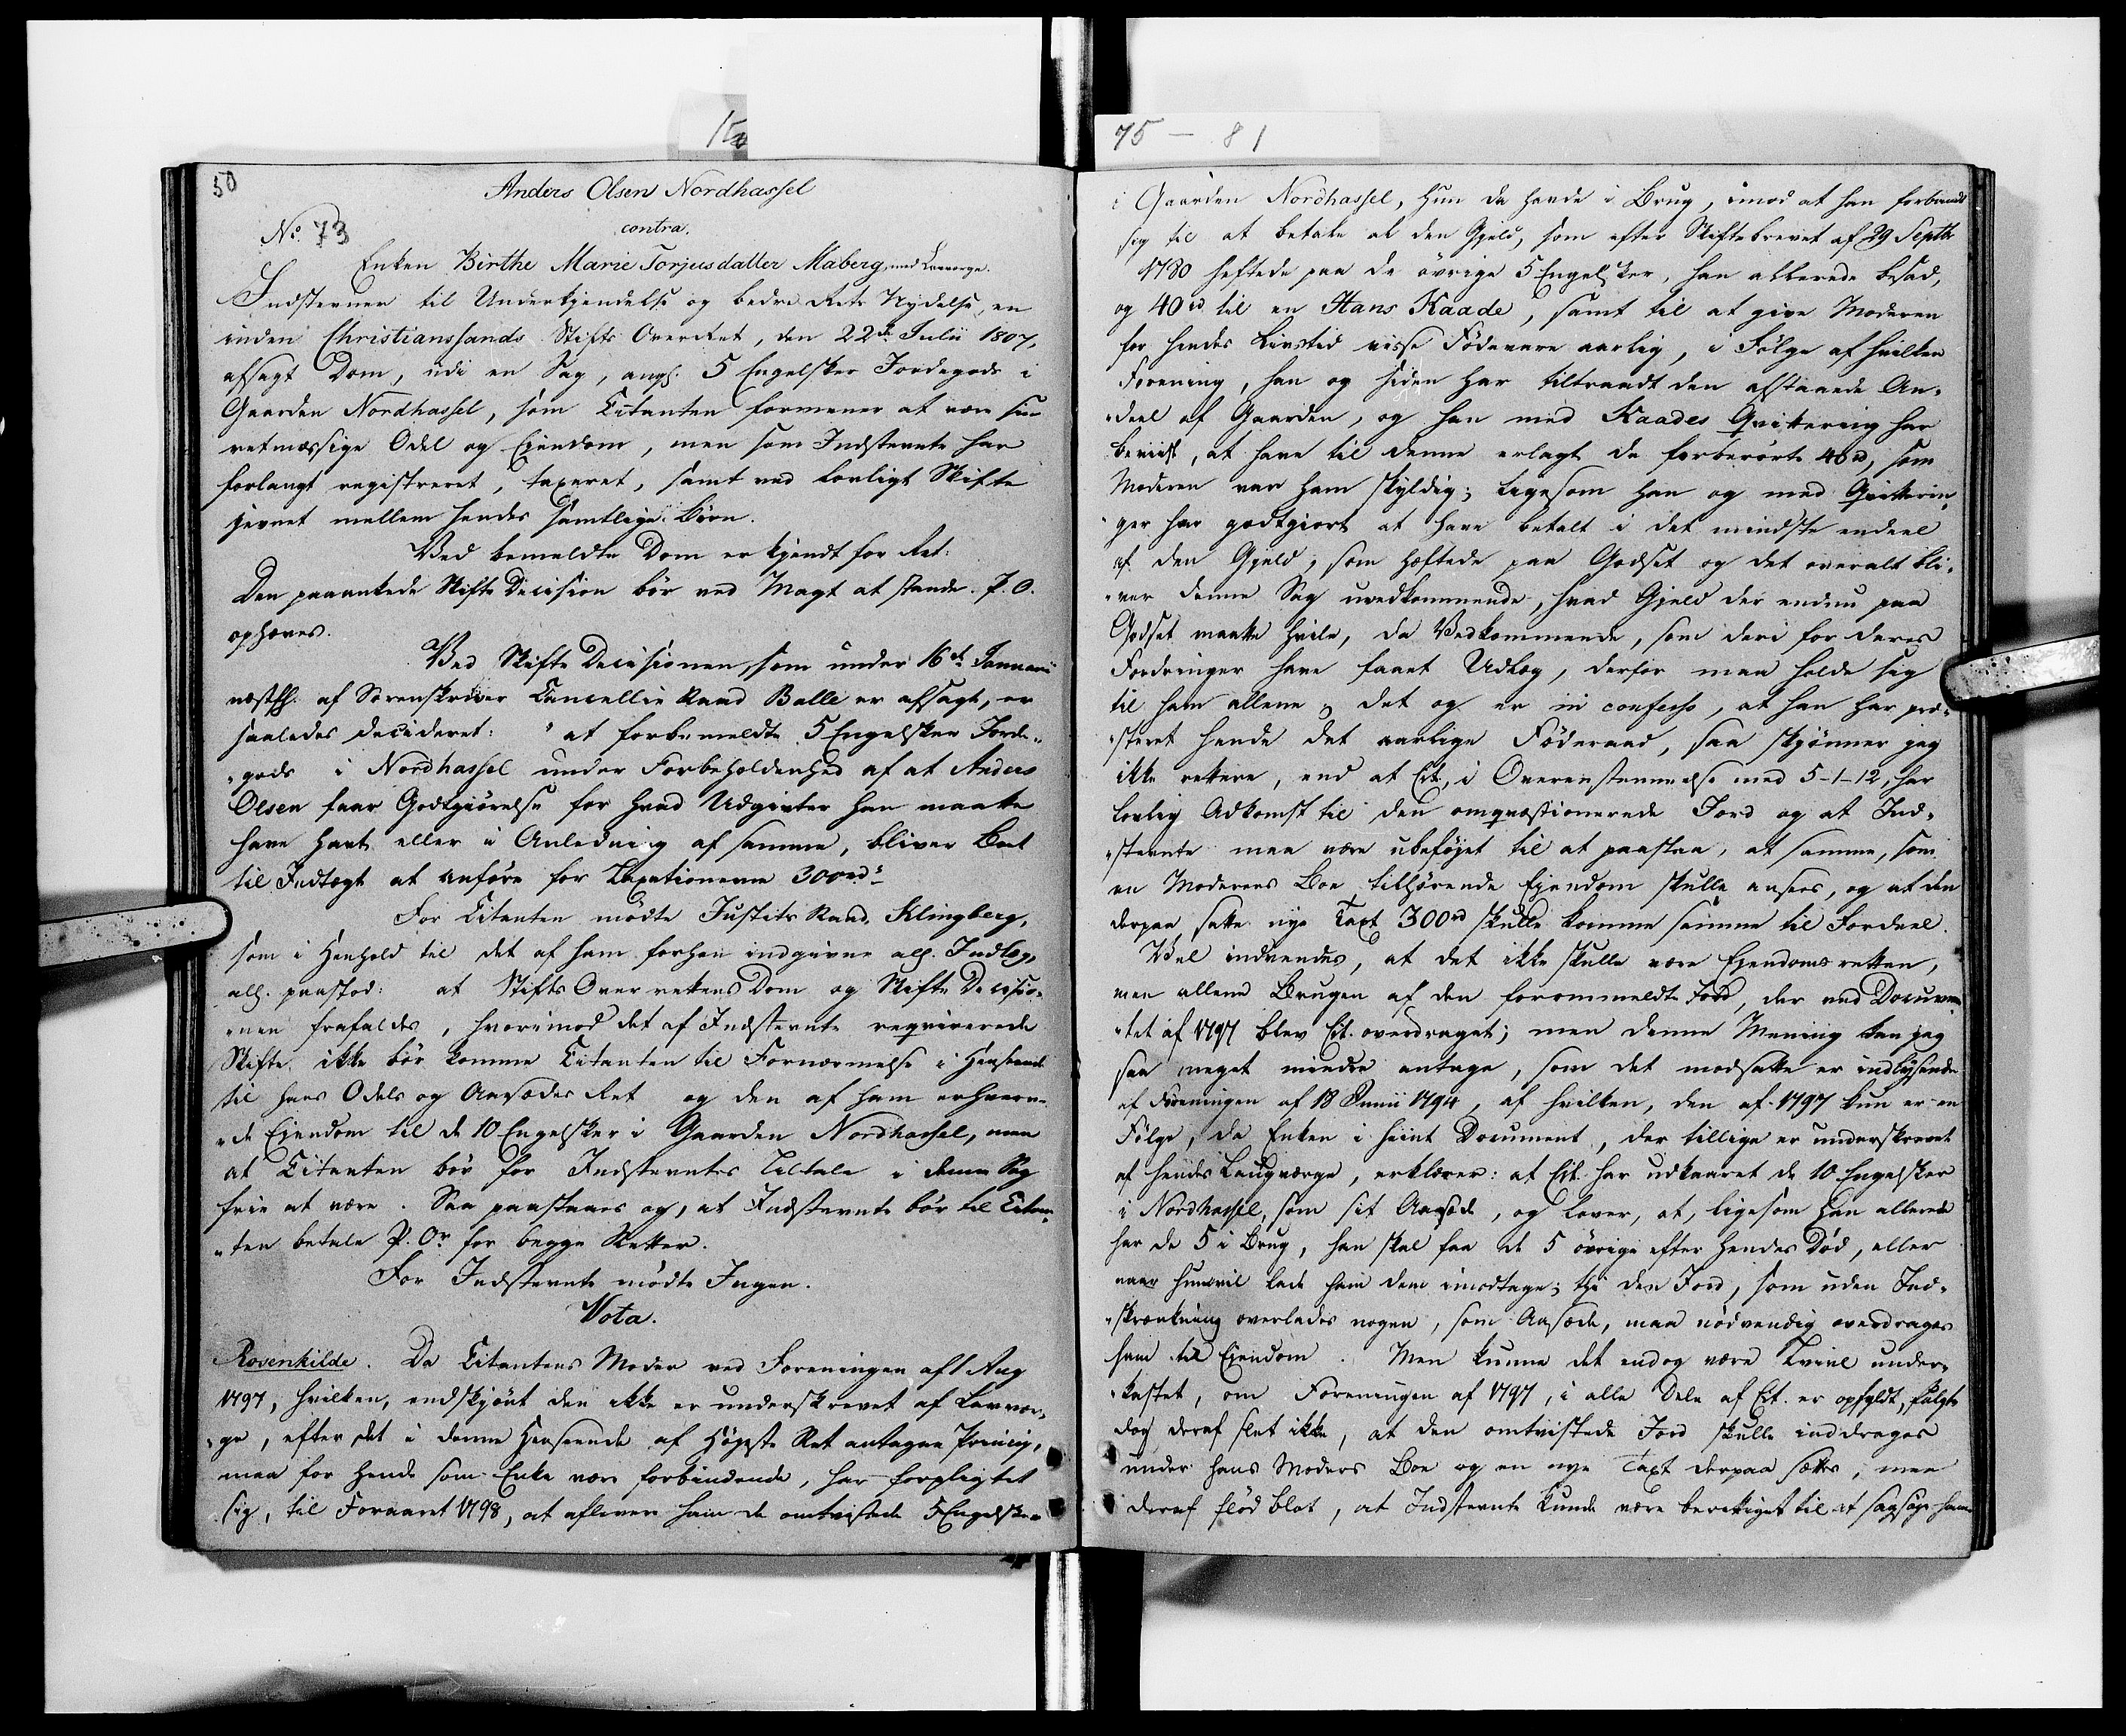 75 - 81
50
Anders Olsen Nordhassel
No. 73
contra.
Enken Birthe Marie Torjusdatter Maberg, med Lauværge.
Indstevner til Underkjendelse og bedre Rets Nydelse, en
inden Christianssands Stifts OverRet, den 22de Julii 1807,
afsagt Dom, udi en Sag, angl. 5 Engelsker Jordegods i
Gaarden Nordhassel, som Citanten formener at være sin
retmæssige Odel og Ejendom, men som Indstevnte har
forlangt registreret, taxeret, samt ved lovligt Skifte
jevnet mellem hendes samtlige Børn.
Ved bemeldte Dom er kjendt for Ret:
Den paaankede Skifte Decision bør ved Magt at stande. P. O.
ophæves.
Ved Skifte Decisionen, som under 16de Januarii
næstfh. af Sorenskriver Cancellie Raad Balle er afsagt, er
saaledes decideret: "at forbemeldte 5 Engelsker Jorde-
"gods i Nordhassel under Forbeholdenhed af at Anders
Olsen faar Godtgiørelse for hvad Udgivter han maatte
have havt eller i Anledning af samme, bliver Boet
til Indtægt at anføre for Taxationerne 300rd
For Citanten mødte Justits Raad Klingberg,
som i Henhold til det af ham forhen indgivne all. Indlæg,
all. paastod: at Stifts Over rettens Dom og Skifte Decisio-
"nen frafaldes, hvorimod det af Indstevnte reqvirerede
Skifte ikke bør komme Citanten til Fornærmelse i Henseende
til hans Odels og Aasædes Ret og den af ham erhverv-
"de Ejendom til de 10 Engelsker i Gaarden Nordhassel, men
at Citanten bør for Indstevntes Tiltale i denne Sag
frie at være. Saa paastaaes og, at Indstevnte bør til Citan-
"ten betale P. Or for begge Retter.
For Indstevnte mødte Ingen.
Vota.
Rosenkilde. Da Citantens Moder ved Foreningen af 1 Aug
1797, hvilken, endskjønt den ikke er underskrevet af Lavvær-
"ge, efter det i denne Henseende af Høyeste Ret antagne Princip,
maa for hende som Enke være forbindende, har forpligtet
sig, til Foraaret 1798, at aflevere ham de omtvistede 5 Engelsker
i Gaarden Nordhassel, hun da havde i Brug, imod at han forbandt
sig til at betale al den Gjeld, som efter Skiftebrevet af 29 Septbr
1780 heftede paa de øvrige 5 Engelsker, han allerede besad,
og 40rd til en Hans Kaade, samt til at give Moderen
for hendes Livstid visse Fødevare aarlig, i Følge af hvilken
Forening, han og siden har tiltraadt den afstaaede An-
"deel af Gaarden, og han med Kaades Qvittering har
beviist, at have til denne erlagt de forberørte 40rd, som
Moderen var ham skyldig; ligesom han og med Qvitterin-
"ger har godtgiort at have betalt i det mindste endeel
af den Gjeld, som heftede paa Godset og det overalt bli-
"ver denne Sag uvedkommende, hvad Gjeld der endnu paa
Godset maatte hvile, da Vedkommende, som deri for deres
Fordringer have faaet Udlæg, derfor maa holde sig
til ham allene og det og er in confesso, at han har præ-
"steret hende det aarlige Føderaad, saa skjønner jeg
ikke rettere, end at Cit., i Overensstemmelse med 5-1-12, har
lovlig Adkomst til den omqvæstionerede Jord og at Ind-
"stevnte maa være ubeføjet til at paastaa, at samme, som
en Moderens Boe tilhørende Ejendom skulle ansees, og at den
derpaa satte nye Taxt 300rd skulle komme samme til Fordeel.
Vel indvendes, at det ikke skulle være Ejendoms retten,
men allene Brugen af den forommeldte Jord, der ved Documen-
"tet af 1797 blev Cit. overdraget; men denne Mening kan jeg
saa meget mindre antage, som det modsatte er indlysende
af Foreningen af 18 Junii 1794, af hvilken, den af 1797 kun er en
Følge, da Enken i hiint Document, der tillige er underskrevet
af hendes Laugværge, erklærer: at Cit. har udkaaret de 10 Engelsker
i Nordhassel, som sit Aasæde, og lover, at, ligesom han allerede
har de 5 i Brug, han skal faa de 5 øvrige efter hendes Død, eller
naar hun vil lade ham dem imodtage; thi den Jord, som uden Ind-
"skrænkning overlades nogen, som Aasæde, maa nødvendig overdrages
ham til Ejendom. Men kunne det endog være Tvivl under-
"kastet, om Foreningen af 1797, i alle Dele af Cit. er opfyldt, fulgte
dog deraf slet ikke, at den omtvistede Jord skulle inddrages
under hans Moders Boe og en nye Taxt derpaa sættes; men
deraf flød blot, at Indstevnte kunde være berettiget til at sagsøge ham